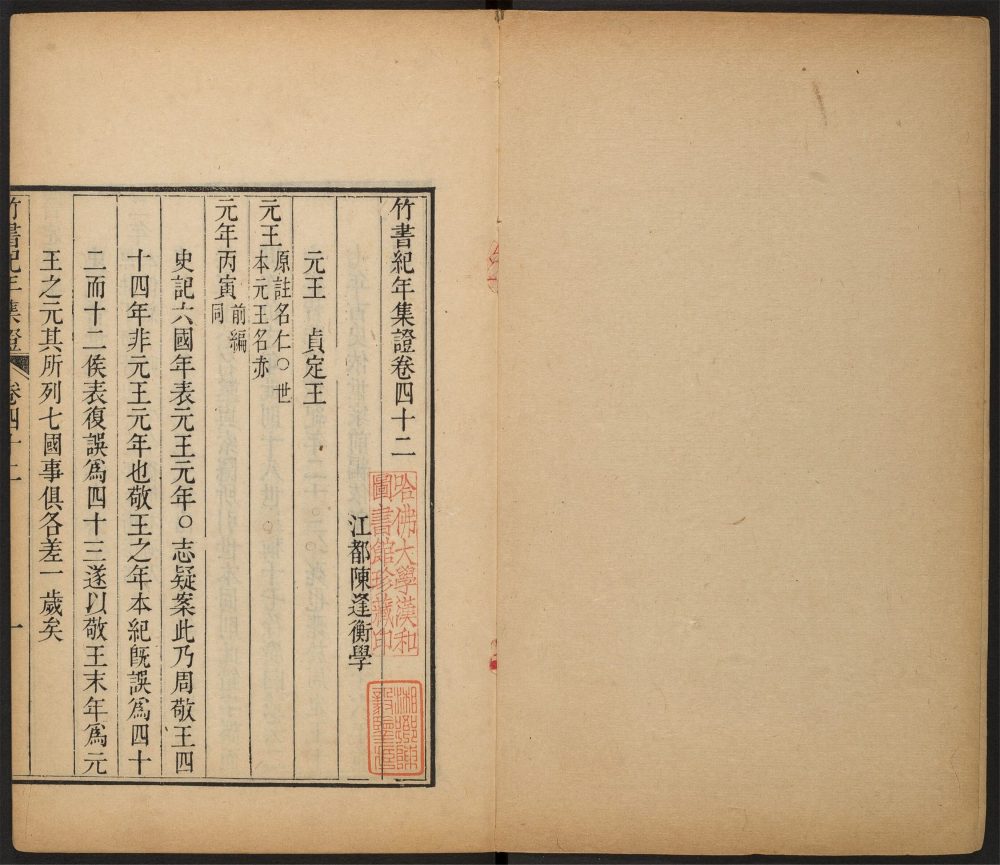 竹書紀年集證卷四十二
江都陳逢衡學
元王　貞定王
元王原註名仁○世
本元王名赤
元年丙寅前編
同
史記六國年表元王元年○志疑案此乃周敬王四
十四年非元王元年也敬王之年本紀旣誤爲四十
二而十二侯表復誤爲四十三遂以敬王末年爲元
王之元其所列七國事俱各差一歲矣
竹書紀年集證
卷四十二
一
哈佛大學漢和
圖書館珍藏印